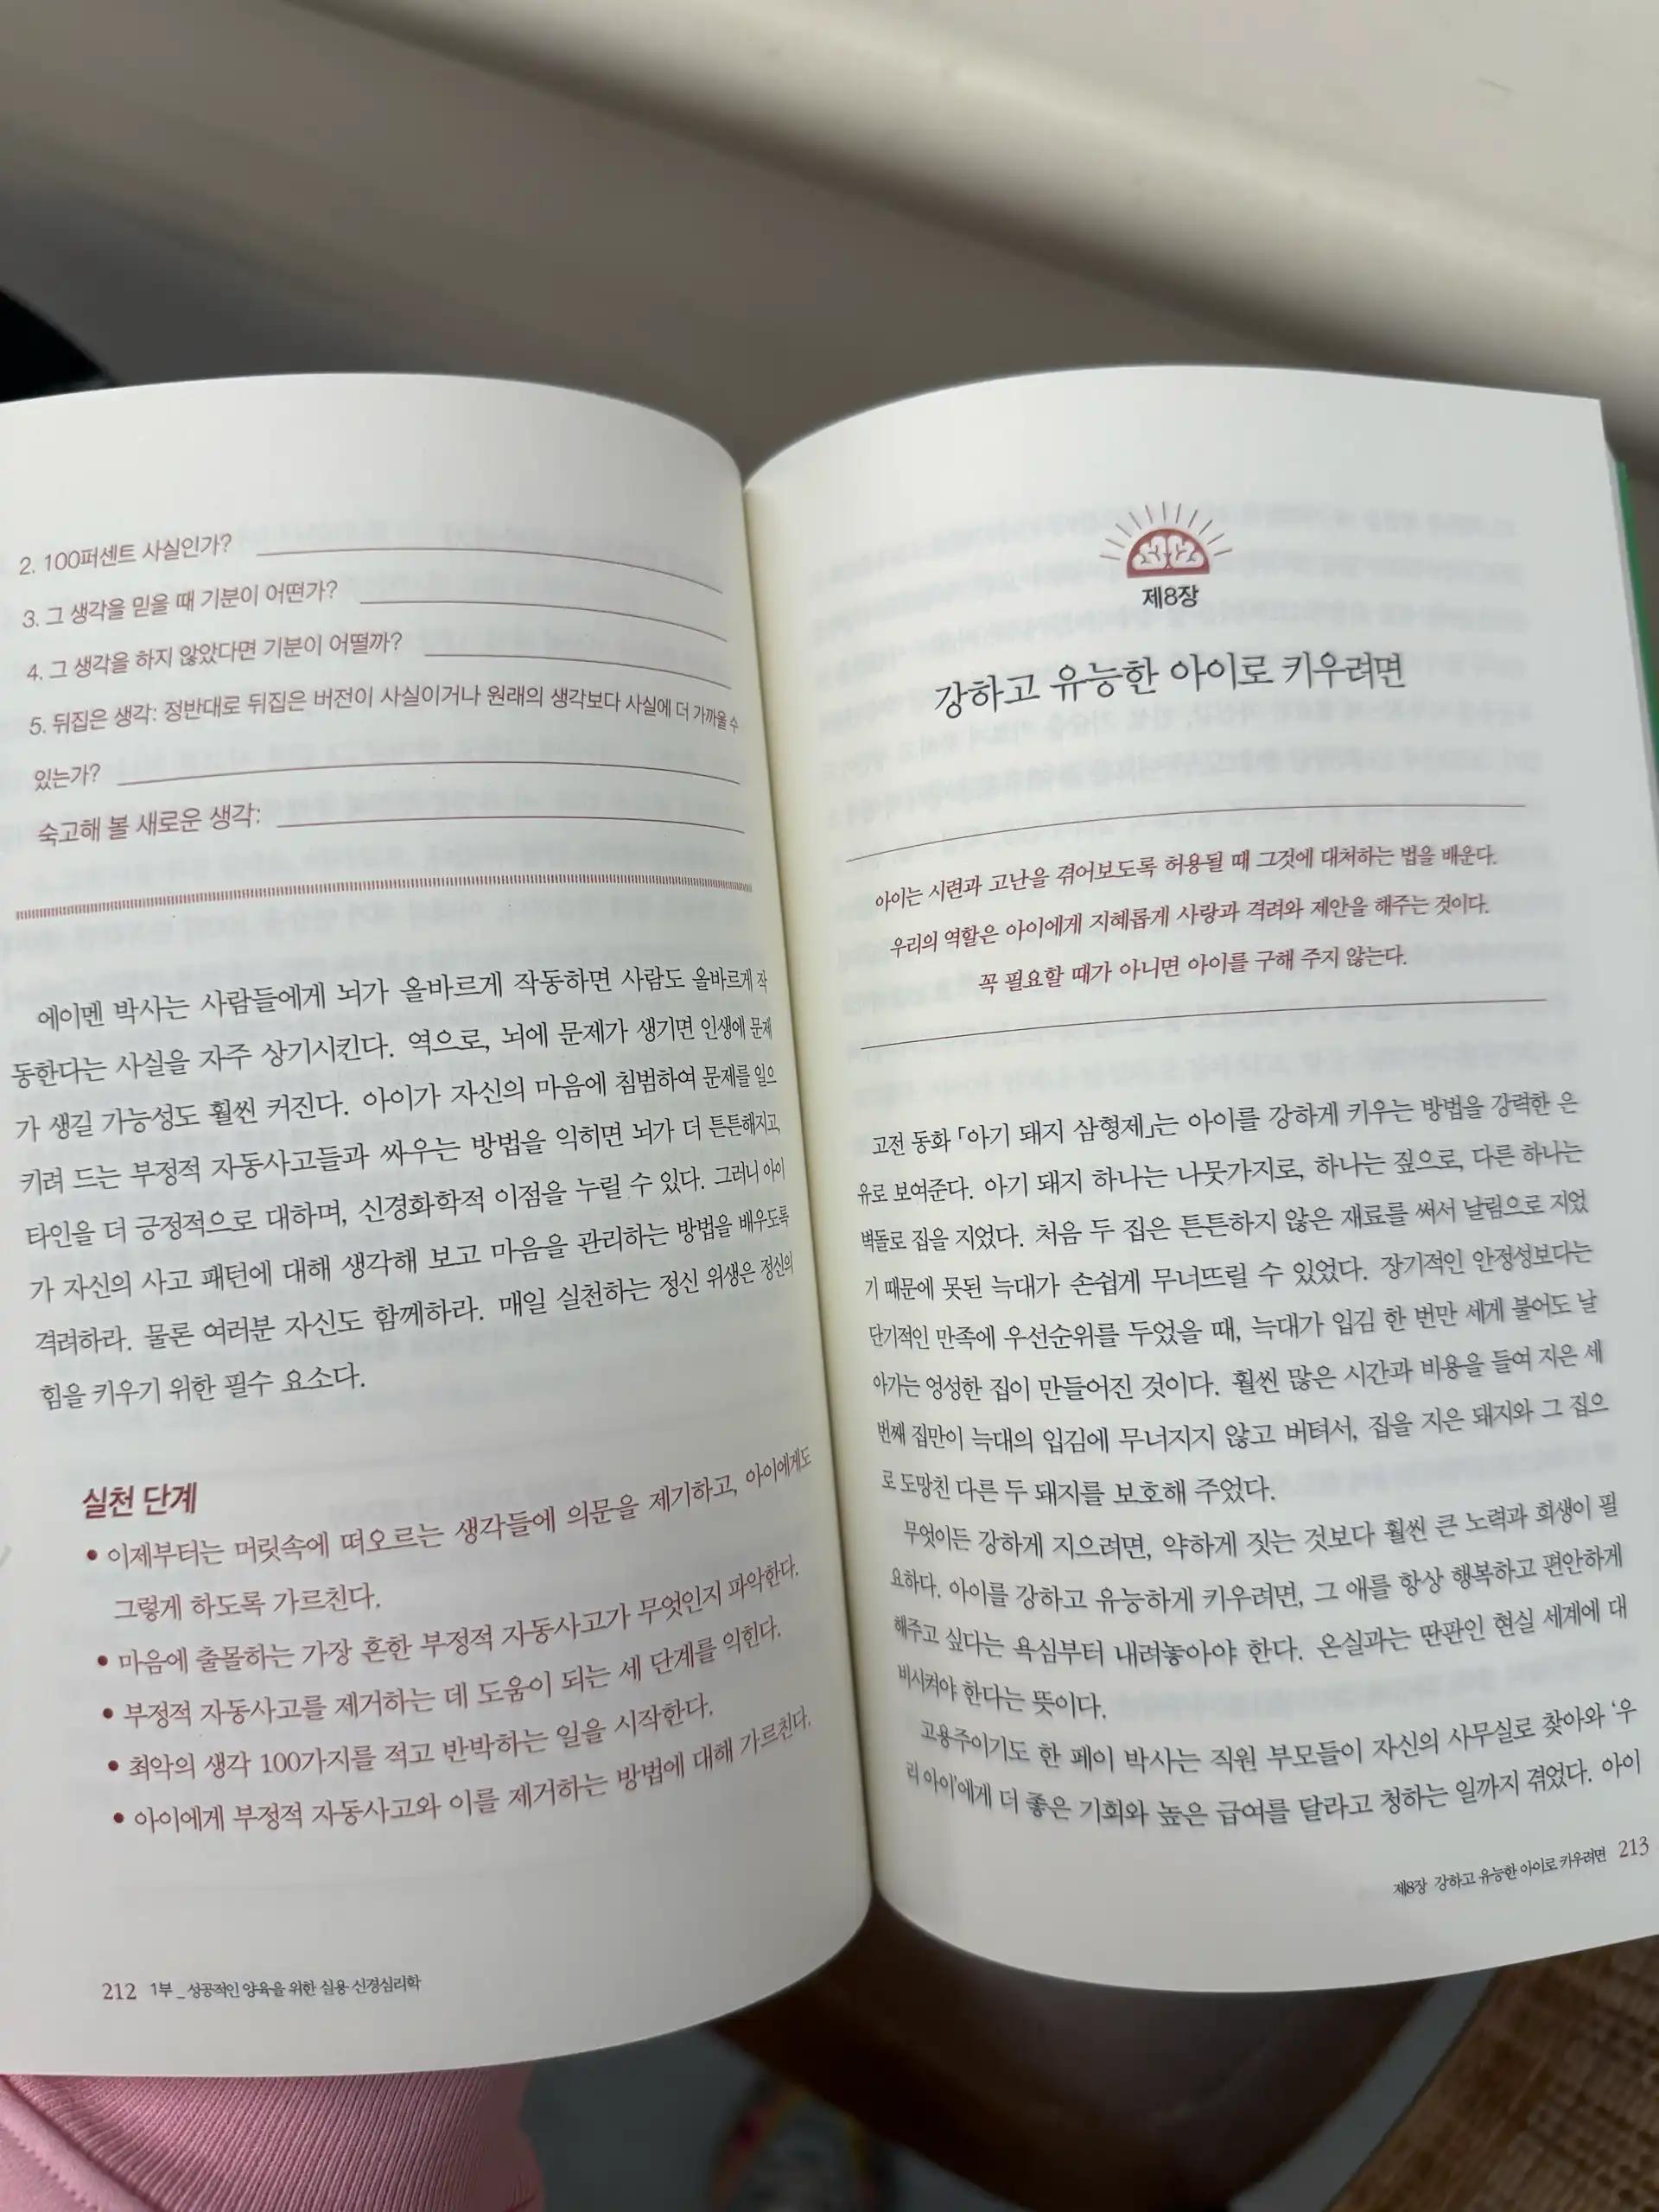 2. 100퍼센트 사실인가?
3. 그 생각을 믿을 때 기분이 어떤가?
4. 그 생각을 하지 않았다면 기분이 어떨까?
5. 뒤집은 생각: 정반대로 뒤집은 버전이 사실이거나 원래의 생각보다 사실에 더 가까울 수
있는가?
숙고해 볼 새로운 생각:
에이멘 박사는 사람들에게 뇌가 올바르게 작동하면 사람도 올바르게 작
동한다는 사실을 자주 상기시킨다. 역으로, 뇌에 문제가 생기면 인생에 문제
가 생길 가능성도 훨씬 커진다. 아이가 자신의 마음에 침범하여 문제를 일으
키려 드는 부정적 자동사고들과 싸우는 방법을 익히면 뇌가 더 튼튼해지고,
타인을 더 긍정적으로 대하며, 신경화학적 이점을 누릴 수 있다. 그러니 아이
가 자신의 사고 패턴에 대해 생각해 보고 마음을 관리하는 방법을 배우도록
격려하라. 물론 여러분 자신도 함께하라. 매일 실천하는 정신 위생은 정신의
힘을 키우기 위한 필수 요소다.
실천 단계
• 이제부터는 머릿속에 떠오르는 생각들에 의문을 제기하고, 아이에게도
그렇게 하도록 가르친다.
• 마음에 출몰하는 가장 흔한 부정적 자동사고가 무엇인지 파악한다.
• 부정적 자동사고를 제거하는 데 도움이 되는 세 단계를 익힌다.
• 최악의 생각 100가지를 적고 반박하는 일을 시작한다.
• 아이에게 부정적 자동사고와 이를 제거하는 방법에 대해 가르친다.
212 1부 _ 성공적인 양육을 위한 실용 신경심리학
제8장
강하고 유능한 아이로 키우려면
아이는 시련과 고난을 겪어보도록 허용될 때 그것에 대처하는 법을 배운다.
우리의 역할은 아이에게 지혜롭게 사랑과 격려와 제안을 해주는 것이다.
꼭 필요할 때가 아니면 아이를 구해 주지 않는다.
고전 동화 「아기 돼지 삼형제」는 아이를 강하게 키우는 방법을 강력한 은
유로 보여준다. 아기 돼지 하나는 나뭇가지로, 하나는 짚으로, 다른 하나는
벽돌로 집을 지었다. 처음 두 집은 튼튼하지 않은 재료를 써서 날림으로 지었
기 때문에 못된 늑대가 손쉽게 무너뜨릴 수 있었다. 장기적인 안정성보다는
단기적인 만족에 우선순위를 두었을 때, 늑대가 입김 한 번만 세게 불어도 날
아가는 엉성한 집이 만들어진 것이다. 훨씬 많은 시간과 비용을 들여 지은 세
번째 집만이 늑대의 입김에 무너지지 않고 버텨서, 집을 지은 돼지와 그 집으
로 도망친 다른 두 돼지를 보호해 주었다.
무엇이든 강하게 지으려면, 약하게 짓는 것보다 훨씬 큰 노력과 희생이 필
요하다. 아이를 강하고 유능하게 키우려면, 그 애를 항상 행복하고 편안하게
해주고 싶다는 욕심부터 내려놓아야 한다. 온실과는 딴판인 현실 세계에 대
비시켜야 한다는 뜻이다.
고용주이기도 한 페이 박사는 직원 부모들이 자신의 사무실로 찾아와 ‘우
리 아이’에게 더 좋은 기회와 높은 급여를 달라고 청하는 일까지 겪었다. 아이
제8장 강하고 유능한 아이로 키우려면 213